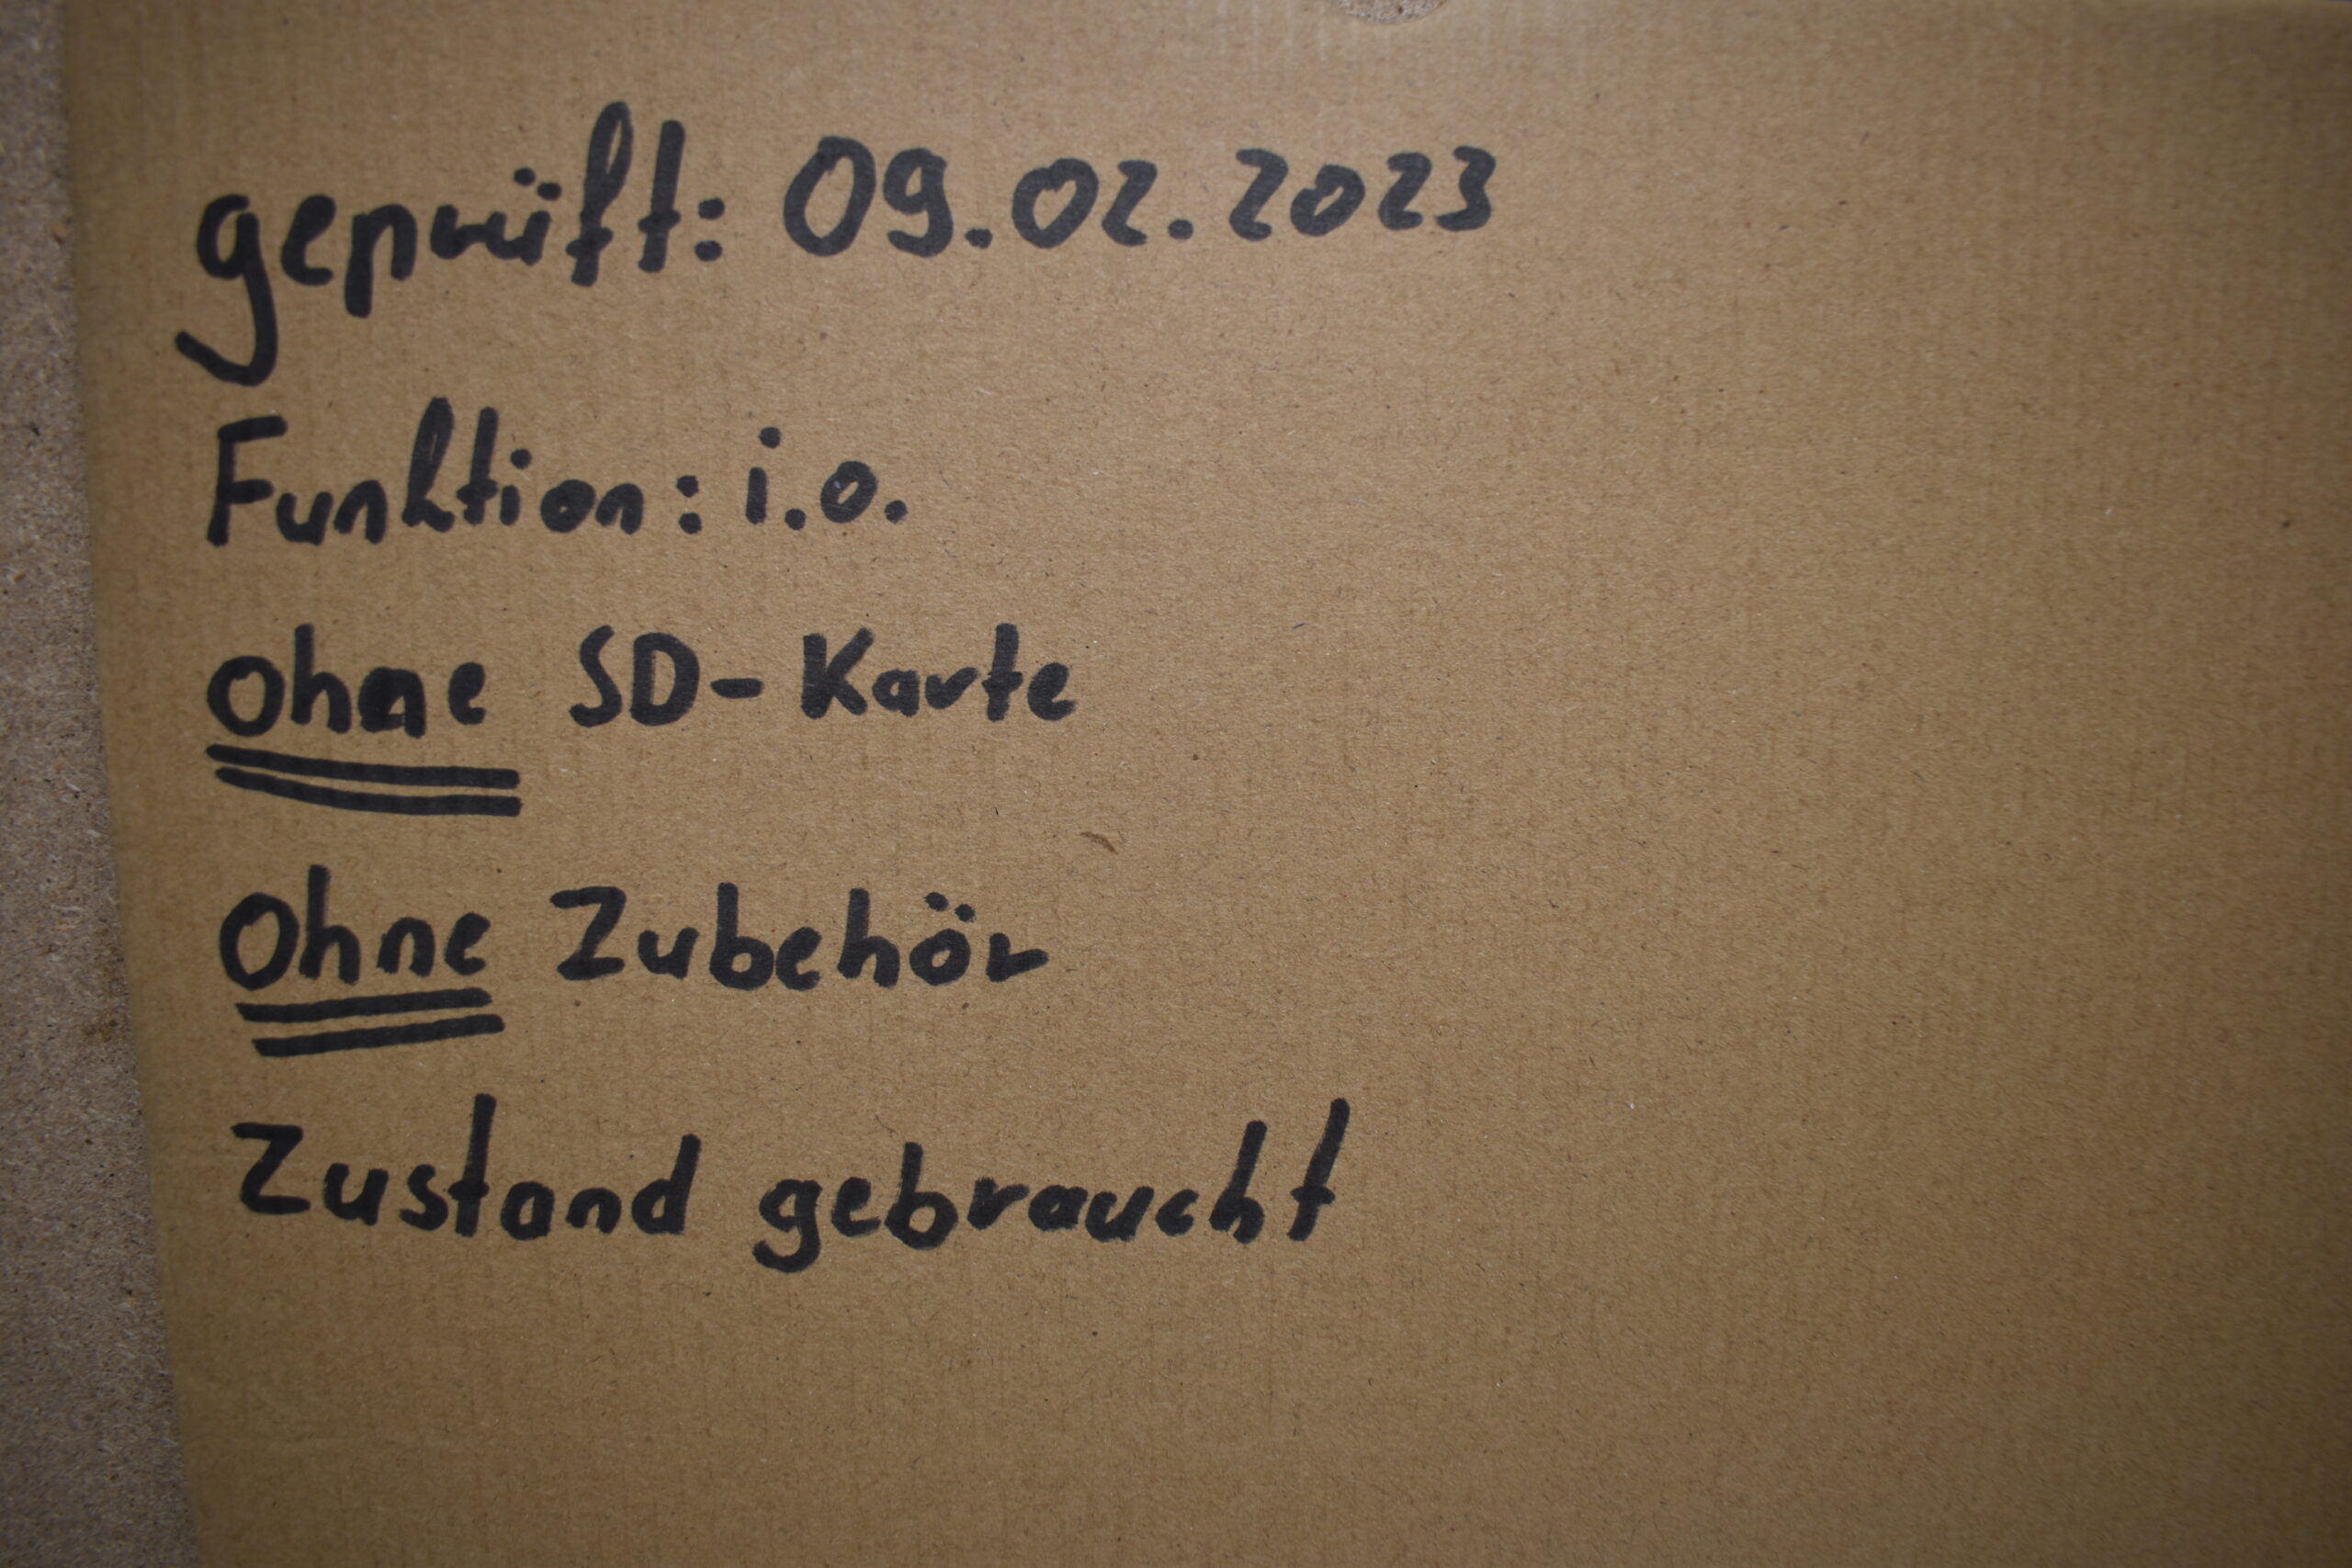 geprüft: 09.02.2023
Funktion: i.o.
ohne SD-Karte
Ohne Zubehör
Zustand gebraucht